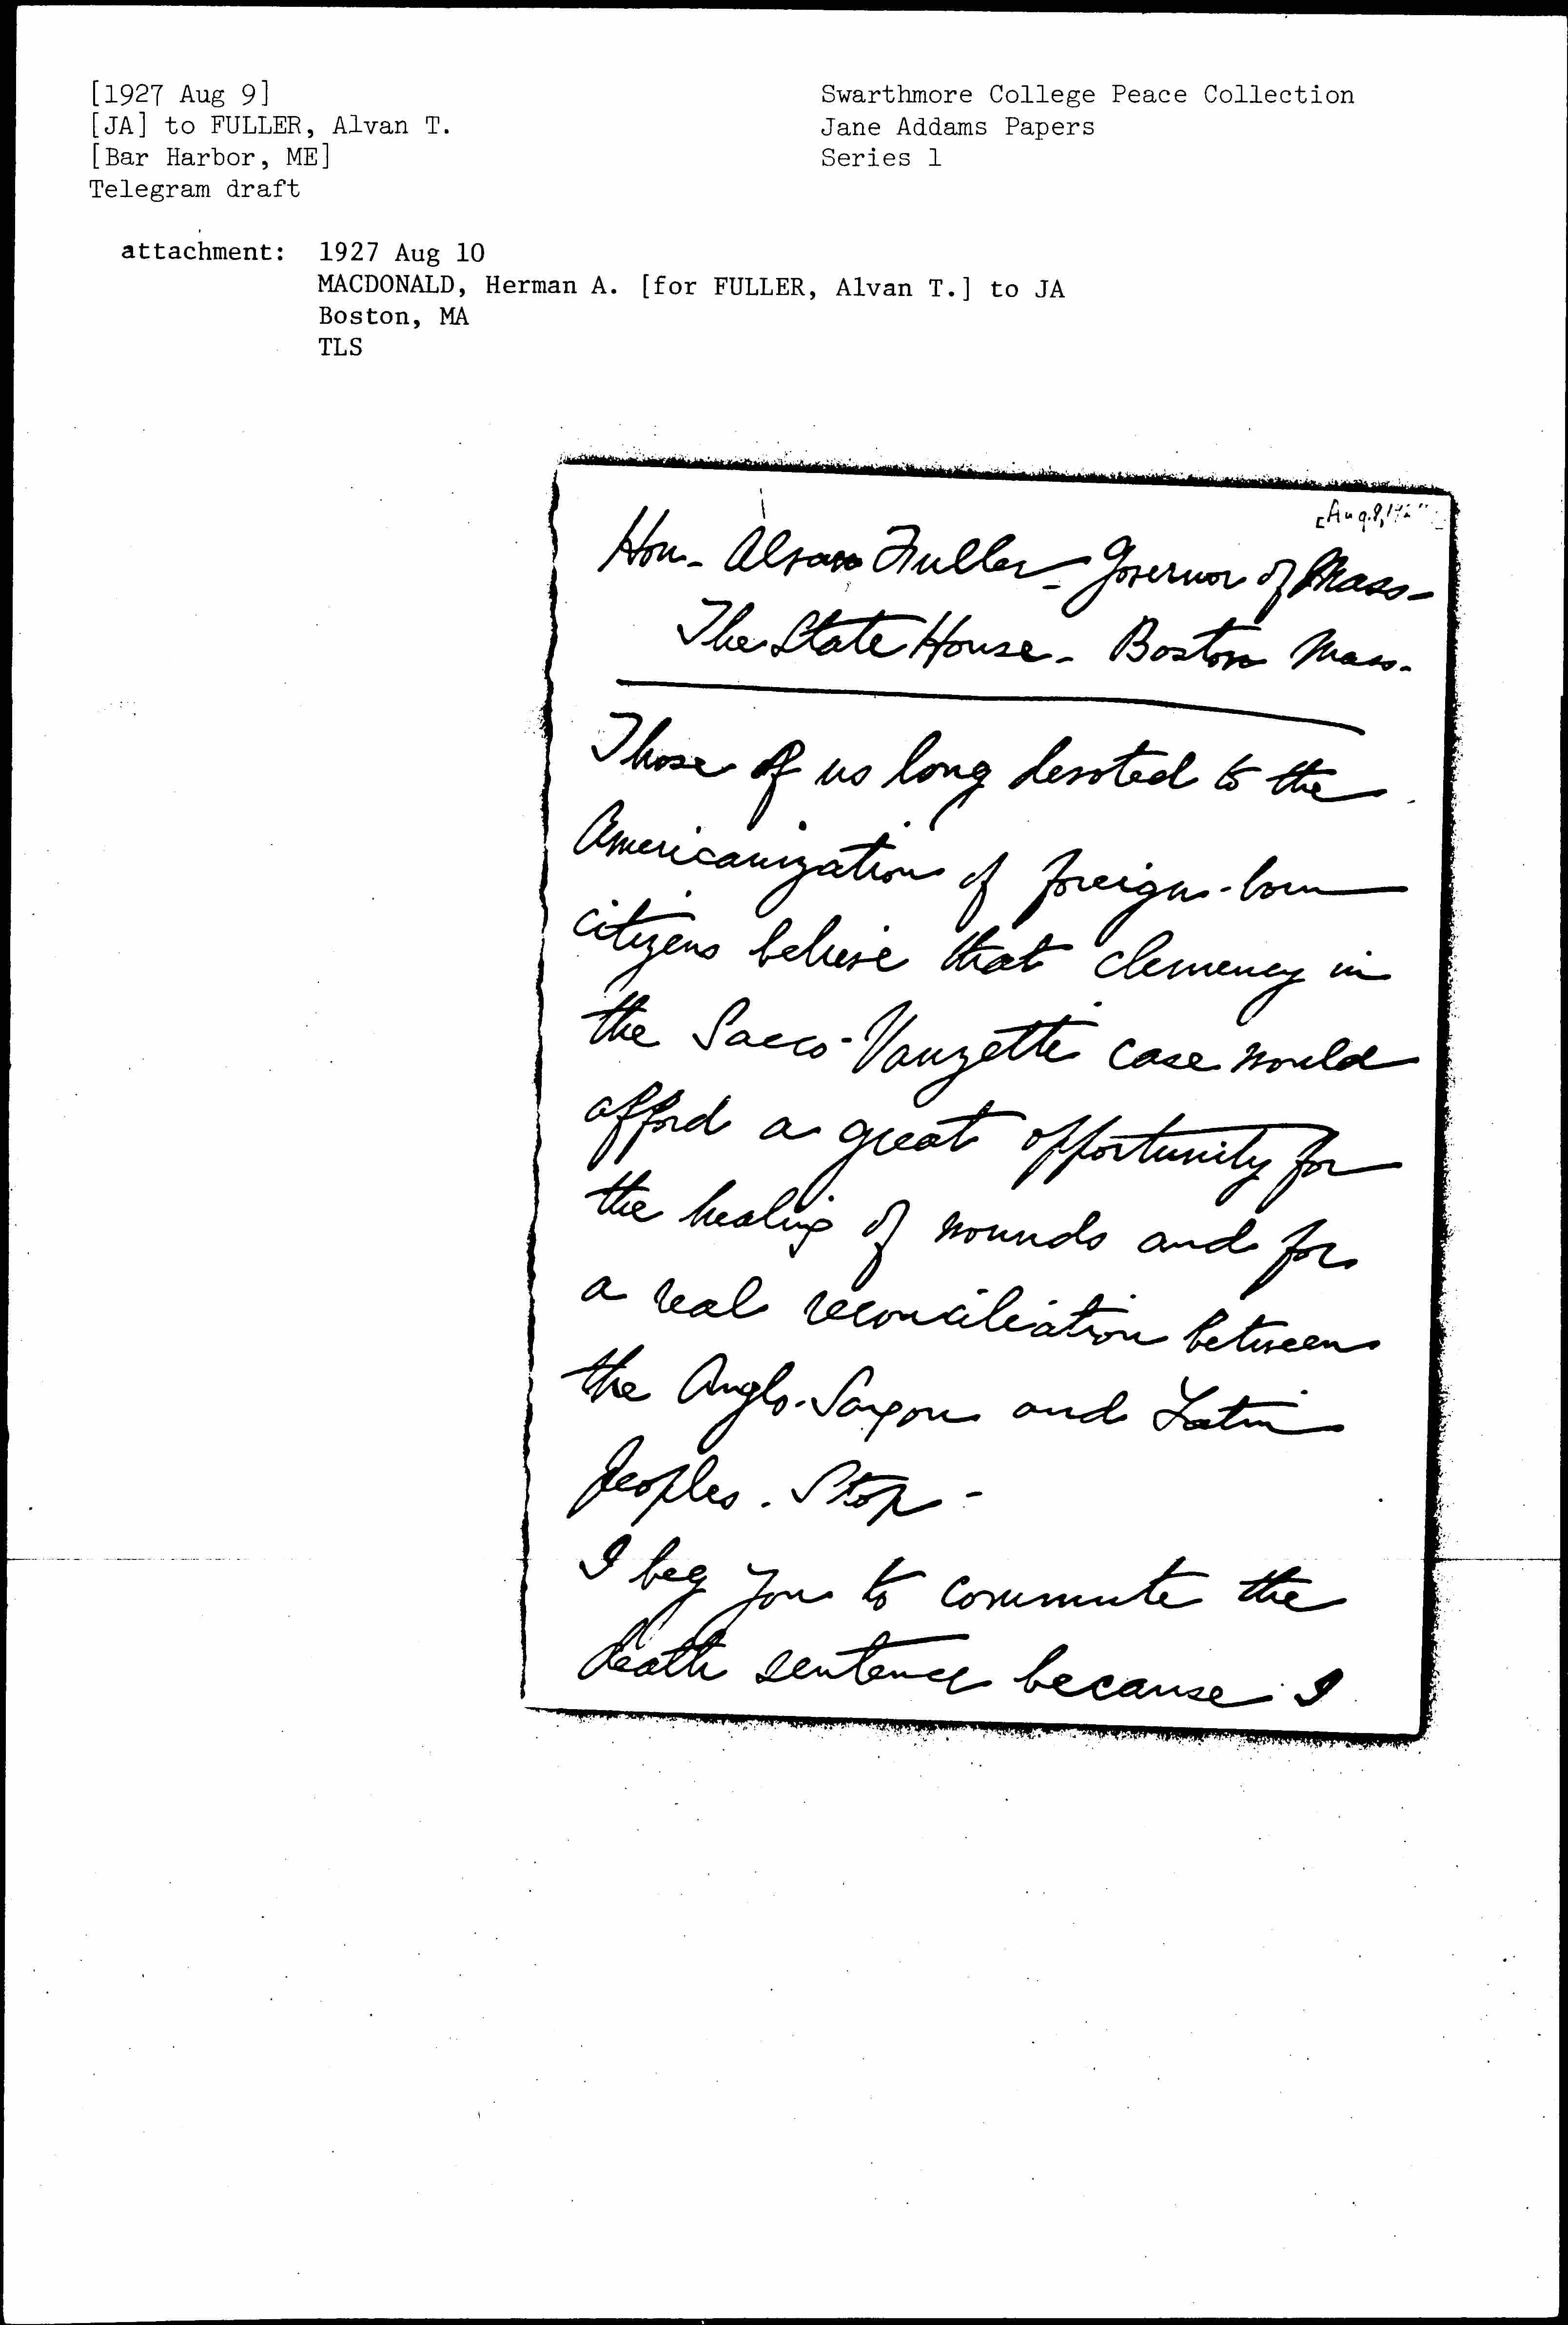 [1927 Aug 9]
[JA] to FULLER, Alvan T.
[Bar Harbor, ME]
Telegram draft
Swarthmore College Peace Collection
Jane Addams Papers
Series 1
attachment: 1927 Aug 10
MACDONALD, Herman A. [for FULLER, Alvan T.] to JA
Boston, MA
TLS
[Aug. 9, 192
Hon- Alvan Fuller- Governor of Mass-
The State House- Boston Mass-
Those of us long devoted to the
Americanization of foreign-born
citizens believe that clemency in
the Sacco-Vanzetti case would
afford a great opportunity for
the healing of wounds and for
a real reconciliation between
the Anglo-Saxon and Latin
peoples. Stop-
I beg you to commute the
death sentence because I